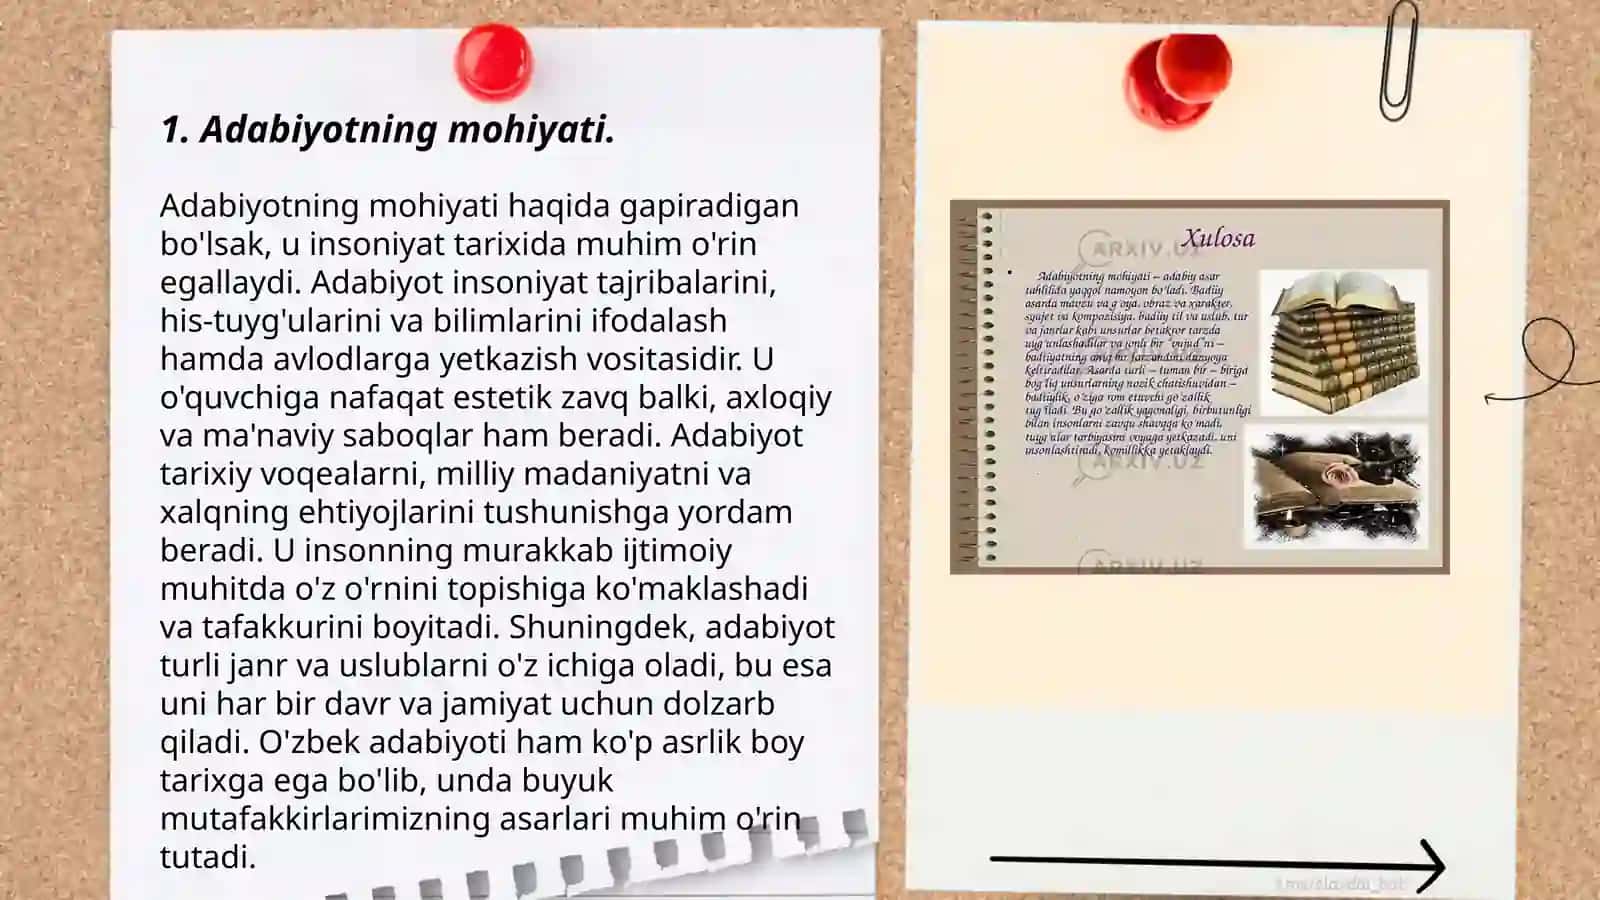 1. Adabiyotning mohiyati.
Adabiyotning mohiyati haqida gapiradigan
bo'lsak, u insoniyat tarixida muhim o'rin
egallaydi. Adabiyot insoniyat tajribalarini,
his-tuyg'ularini va bilimlarini ifodalash
hamda avlodlarga yetkazish vositasidir. U
o'quvchiga nafaqat estetik zavq balki, axloqiy
va ma'naviy saboqlar ham beradi. Adabiyot
tarixiy voqealarni, milliy madaniyatni va
xalqning ehtiyojlarini tushunishga yordam
beradi. U insonning murakkab ijtimoiy
muhitda o'z o'rnini topishiga ko'maklashadi
va tafakkurini boyitadi. Shuningdek, adabiyot
turli janr va uslublarni o'z ichiga oladi, bu esa
uni har bir davr va jamiyat uchun dolzarb
qiladi. O'zbek adabiyoti ham ko'p asrlik boy
tarixga ega bo'lib, unda buyuk
mutafakkirlarimizning asarlari muhim o'rin
tutadi.
Xulosa
ARXIV.UZ
Adabiyotning mohiyati – adabiy asar
tahlilida yaqqol namoyon bo'ladi. Badiiy
asarda mavzu va g'oya, obraz va xarakter,
syujet va kompozisiya, badiiy til va uslub, tur
va janrlar kabi unsurlar betakror tarzda
uyg'unlashadilar va jonli bir "vujud"ni –
badiiyatning aniq bir farzandini dunyoga
keltiradilar. Asarda turli – tuman bir – biriga
bog'liq unsurlarning nozik chatishuvidan –
badiiylik, o'ziga rom etuvchi go'zallik
tug'iladi. Bu go'zallik yagonaligi, birbutunligi
bilan insonlarni zavqu shavqqa ko'madi,
tuyg'ular tarbiyasini voyaga yetkazadi, uni
insonlashtiradi, komillikka yetaklaydi.
ARXIV.UZ
ARXIV.UZ